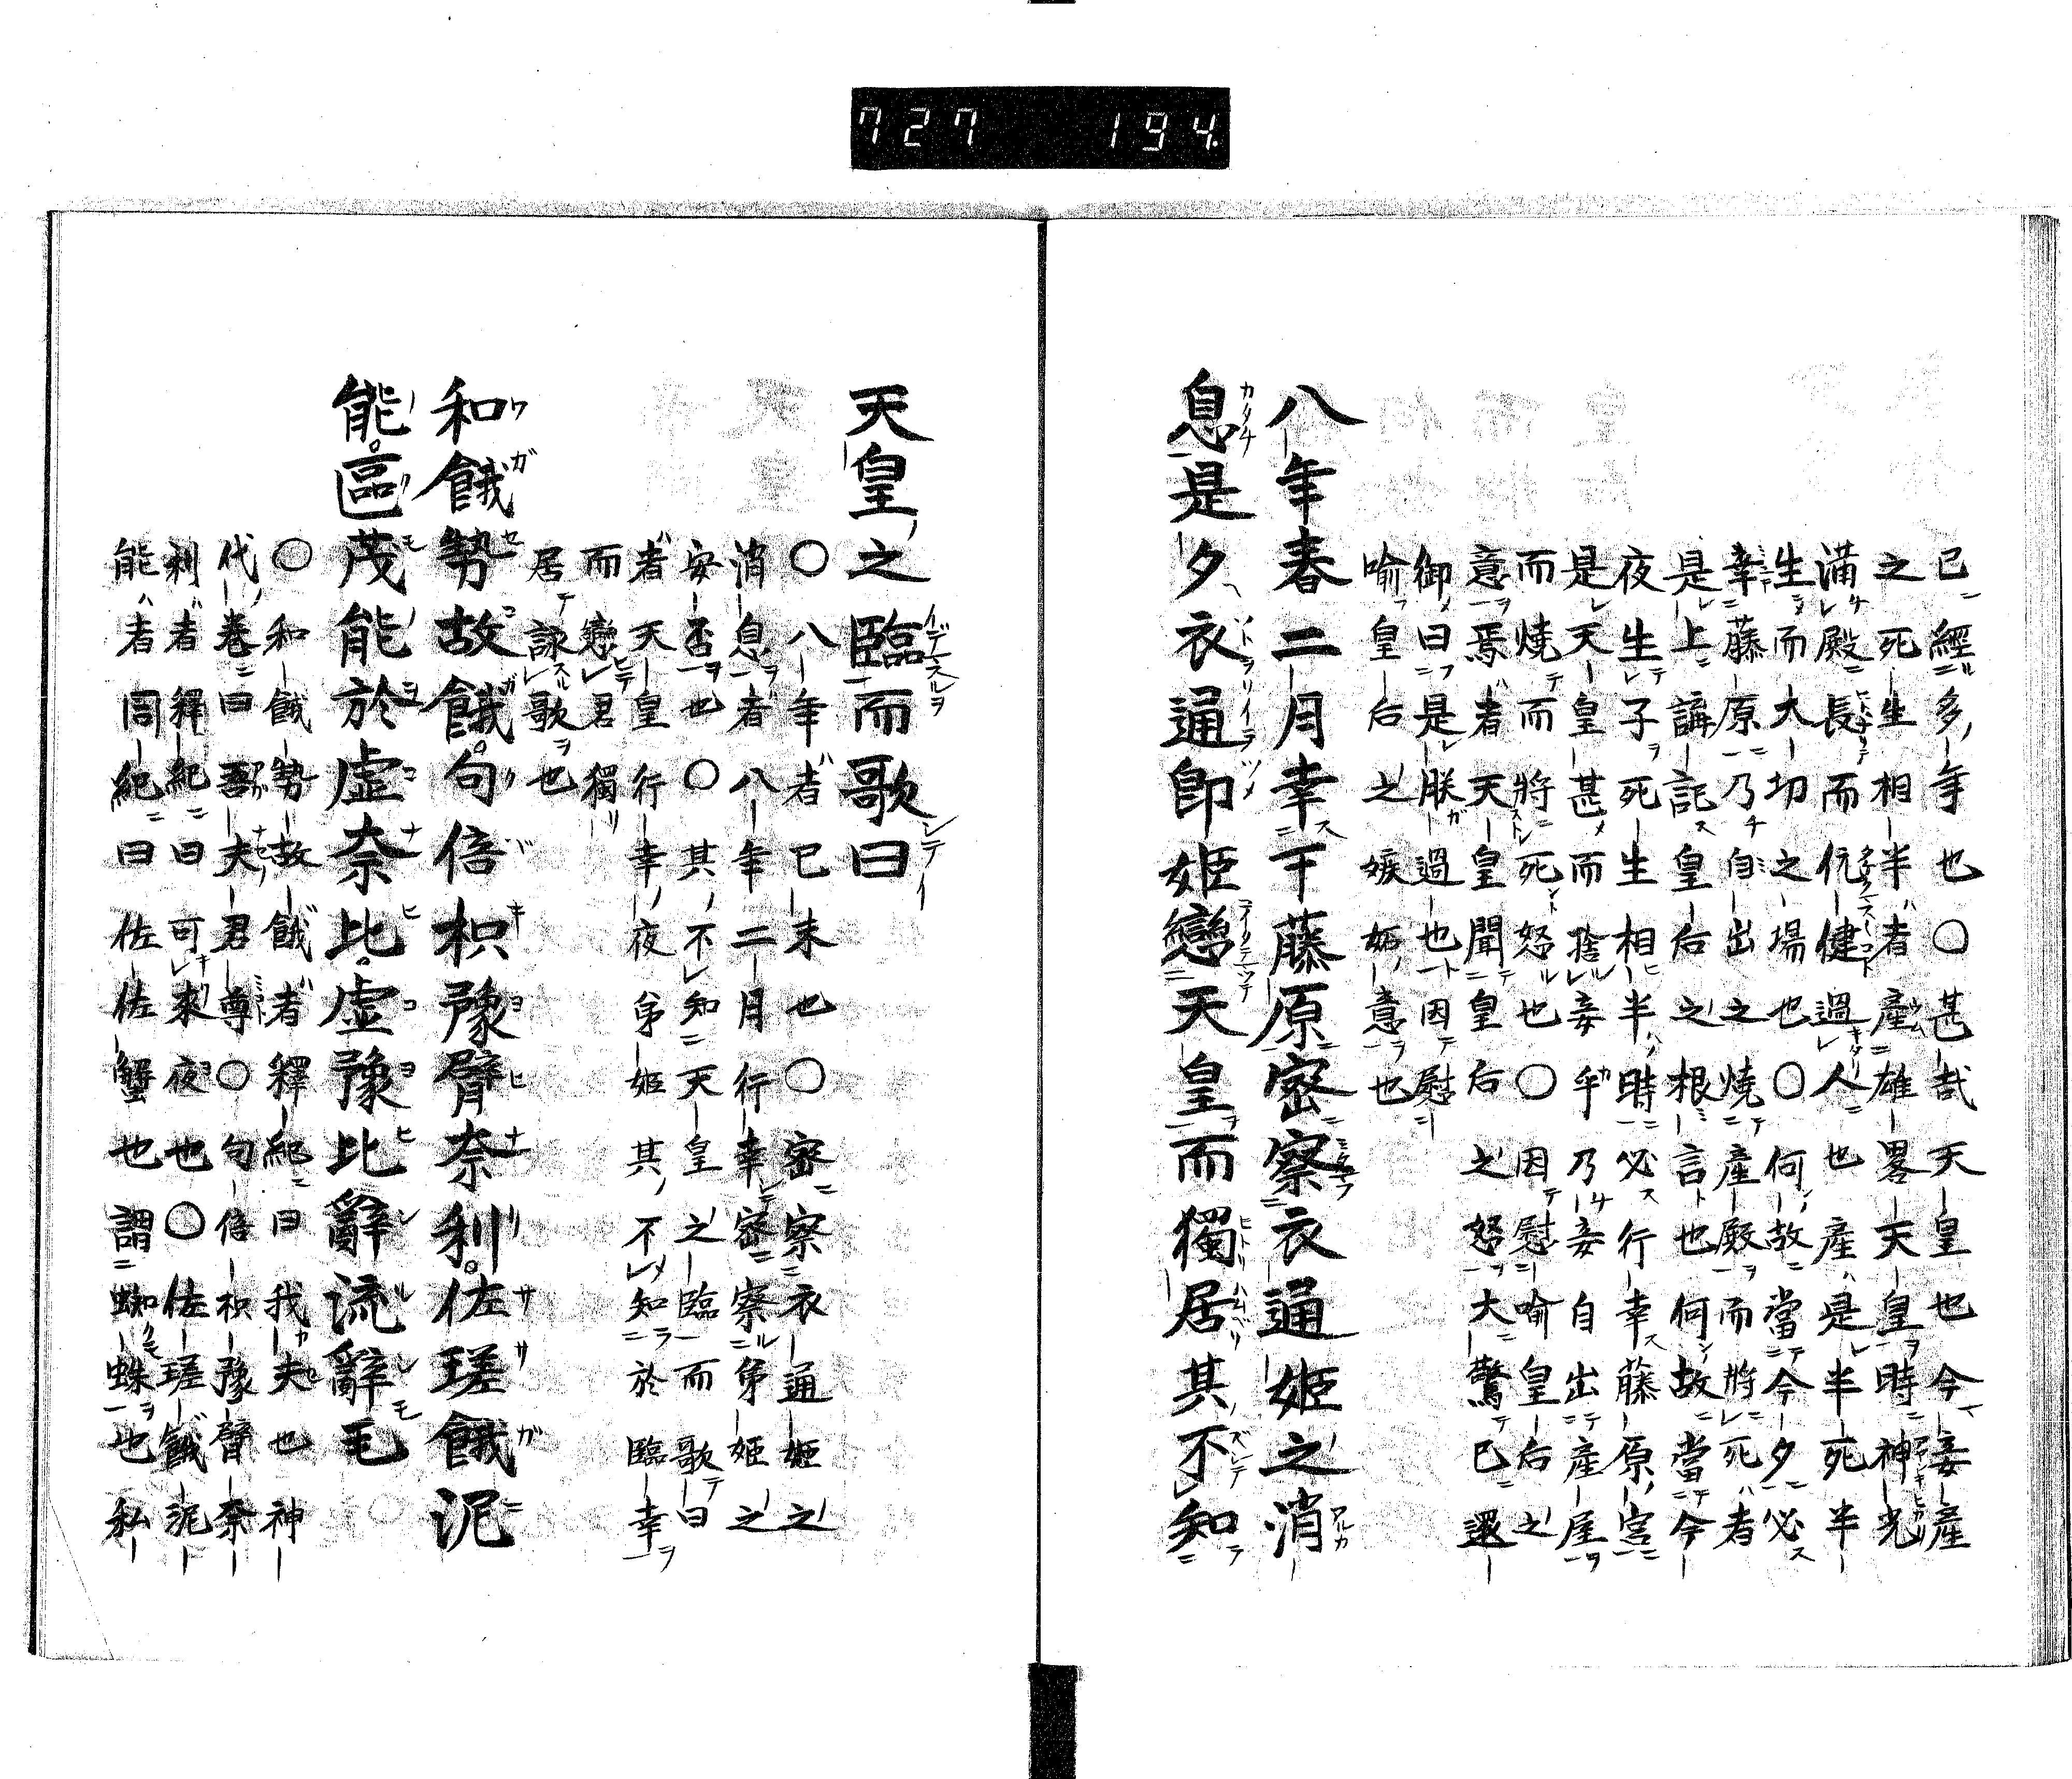 727 194
已經多年也○甚哉天皇也今妾產
之死生相半者產雄略天皇時神光
滿殿長而伉健過人也產是半死半
生而大切之場也○何故當今夕必
幸藤原乃自出之燒產殿而將死者
是上講記皇后之根言也何故當今
夜生子死生相半時必行幸藤原宮
是天皇甚而捨妾乎乃妾自出產屋
而燒而將死怒也○因慰喻皇后之
意焉者天皇聞皇后之怒大驚已還
御曰是朕過也因慰
喻皇后之嫉妬意也
八年春二月幸于藤原密察衣通姬之消
息是夕衣通郎姬戀天皇而獨居其不知
天皇之臨而歌曰
○八年者已未也○密察衣通姬之
消息者八年二月行幸密察弟姬之
安否也○其不知天皇之臨而歌曰
者天皇行幸夜弟姬其不知於臨幸
而戀君獨
居詠歌也
和餓勢故餓句倍枳豫臂奈利佐瑳餓泥
能區茂能於虛奈比虛豫比辭流辭毛
○和餓勢故餓者釋紀曰我夫也神
代卷曰吾夫君尊○句倍枳豫臂奈
利者釋紀曰可來夜也○佐瑳餓泥
能者同紀曰佐佐蟹也謂蜘蛛也私